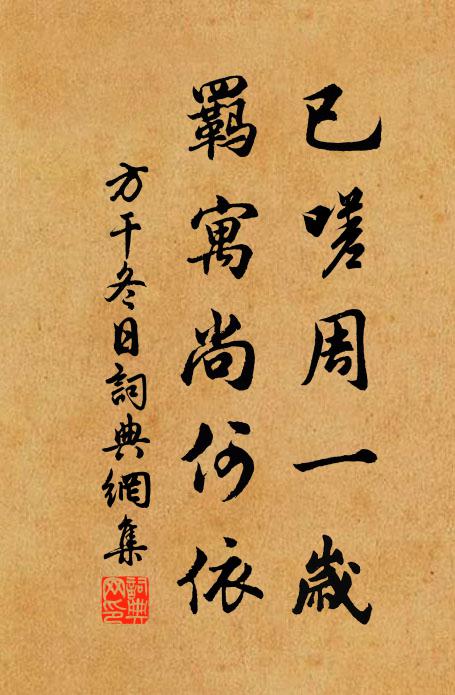 已嗟周一歲
羈寓尚何依
方干冬日詞典網集
詞典网印